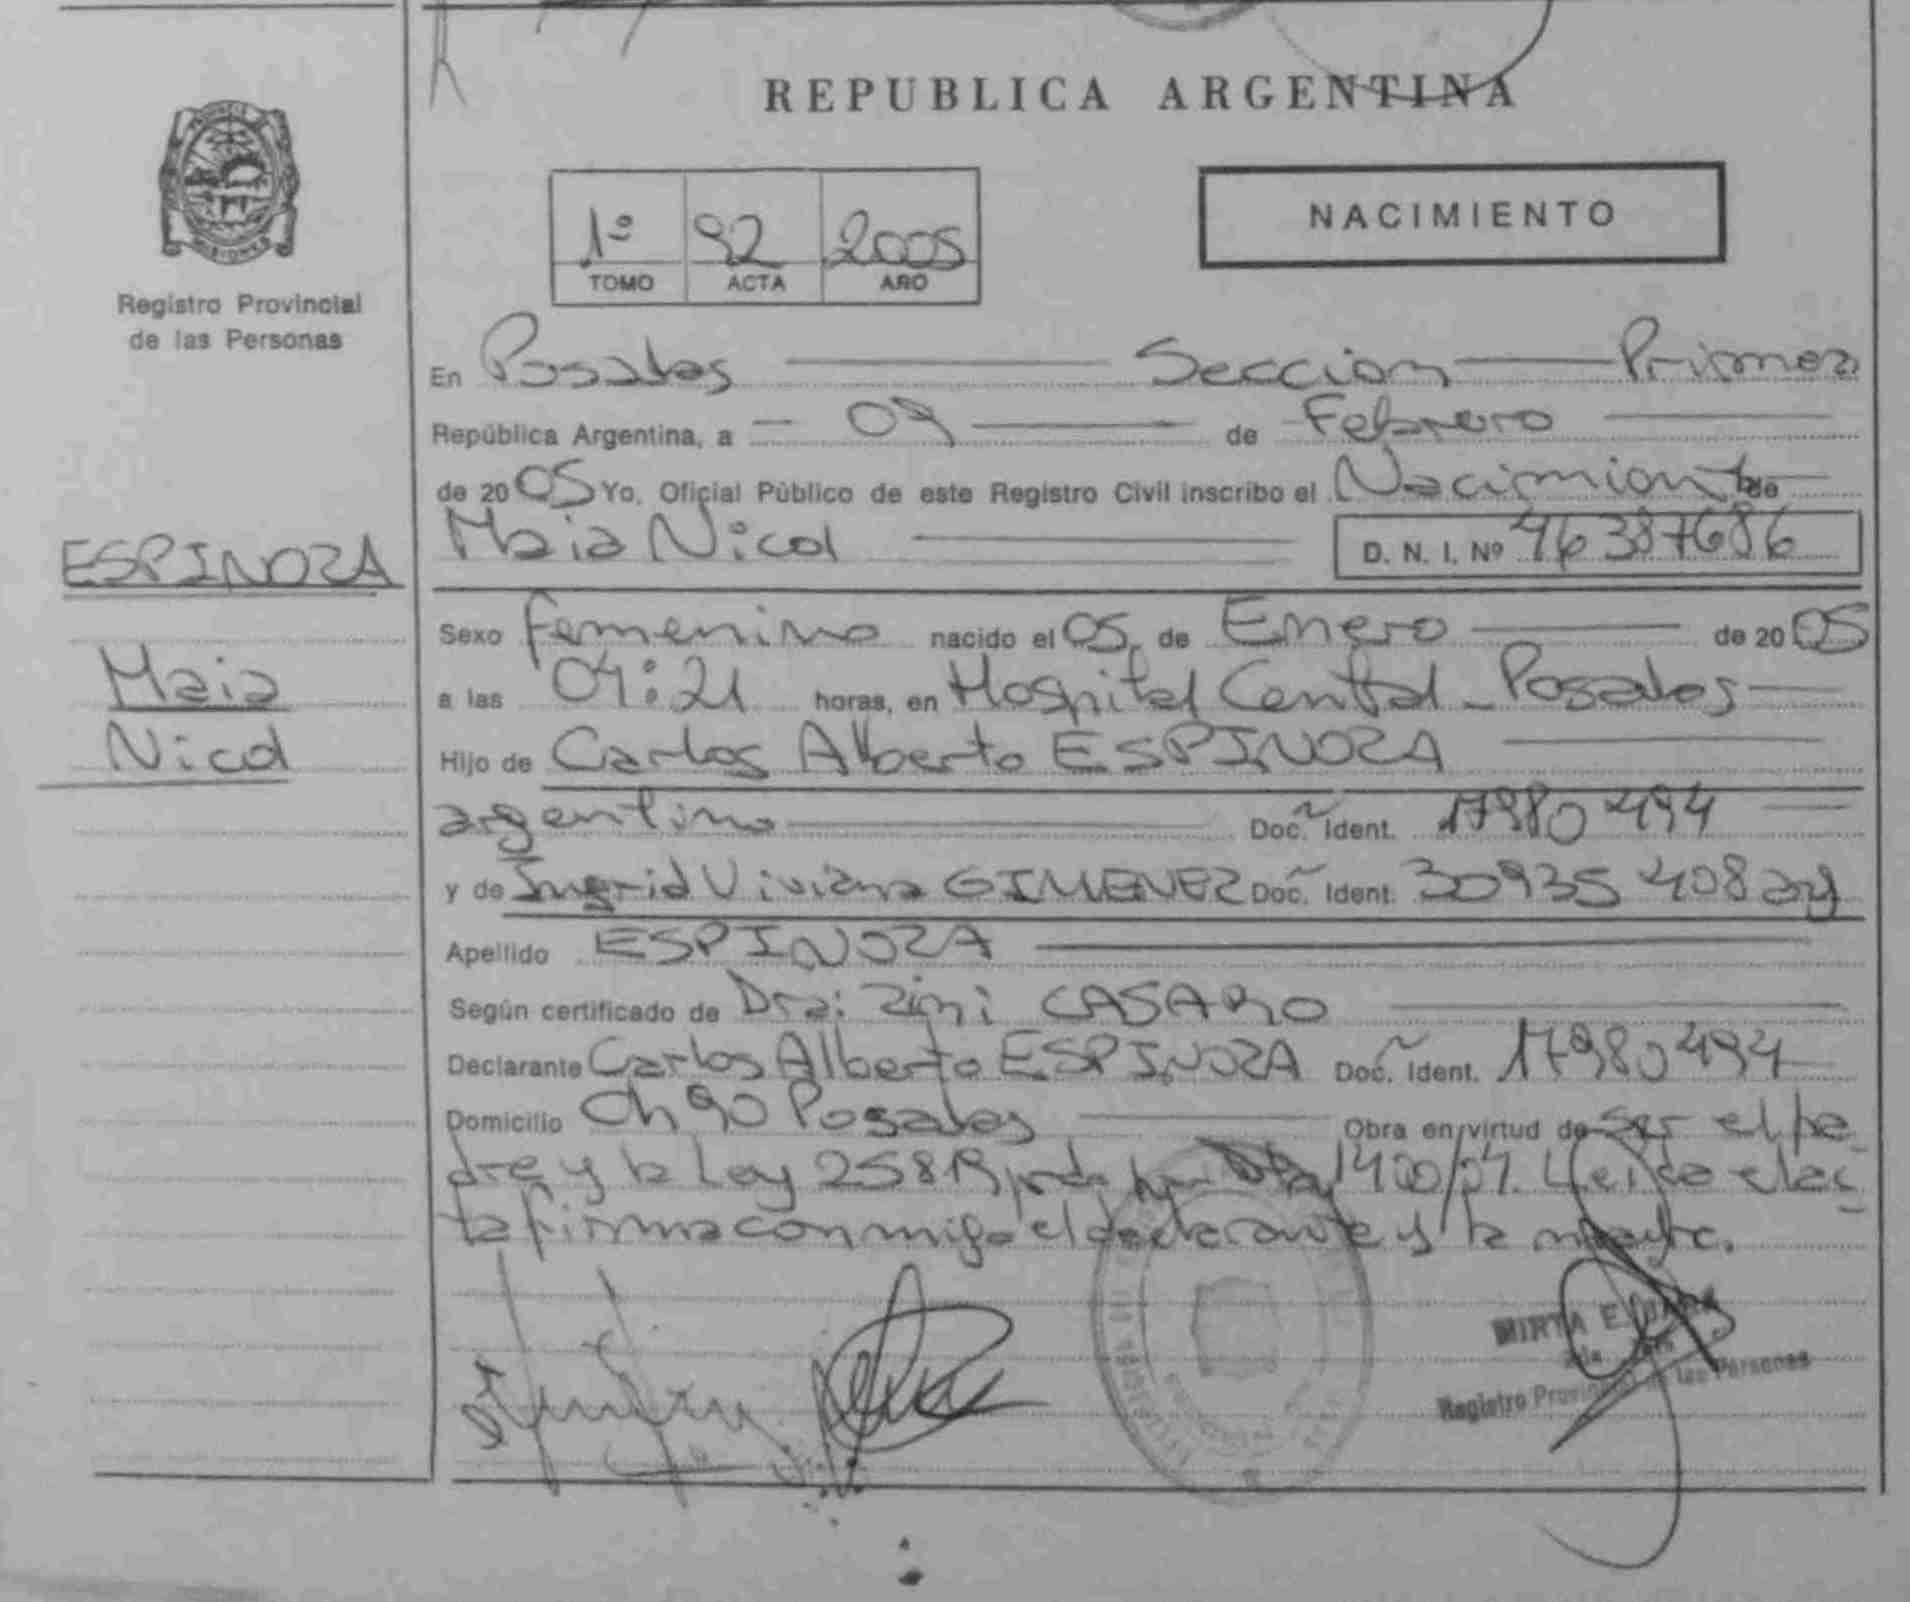 REPUBLICA ARGENTINA
Registro Provincial
de las Personas
1º 92 2005
TOMO ACTA AÑO
NACIMIENTO
En Posadas Seccion Primera
República Argentina, a 09 de Febrero
de 2005 Yo, Oficial Público de este Registro Civil inscribo el Nacimiento de
Maia Nicol D. N. I. Nº 46387686
ESPINOZA
Maia
Nicol
Sexo femenino nacido el 05 de Enero de 2005
a las 04:21 horas, en Hospital Central - Posadas
Hijo de Carlos Alberto ESPINOZA
argentino Doc. Ident. 17980494
y de Ingrid Viviana GIMENEZ Doc. Ident. 30935408 arg
Apellido ESPINOZA
Según certificado de Dra: Zini CASARO
Declarante Carlos Alberto ESPINOZA Doc. Ident. 17980494
Domicilio Ch 90 Posadas Obra en virtud de ser el pa-
dre y la Ley 1400/04. Leida el ac-
ta firma conmigo el declarante y la madre.
MIRTA E.
Registro Provincial de las Personas